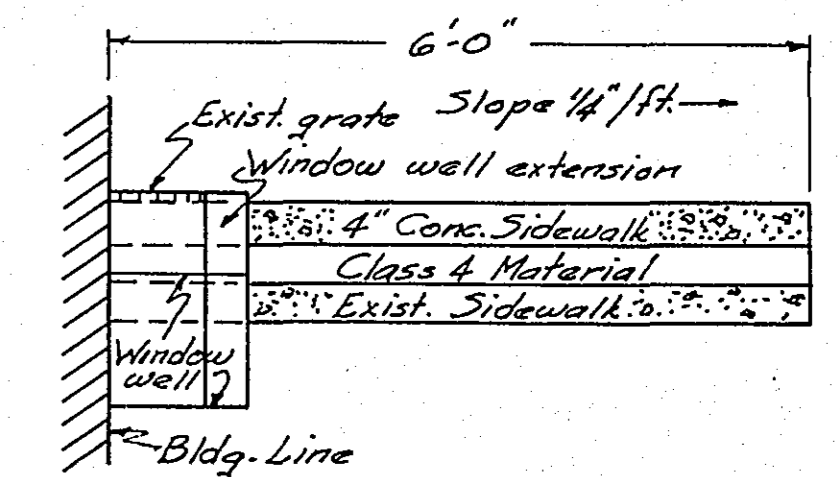 6'-0"
Exist. grate Slope 1/4"/ft.
Window well extension
4" Conc. Sidewalk
Class 4 Material
Exist. Sidewalk
Window
well
Bldg. Line